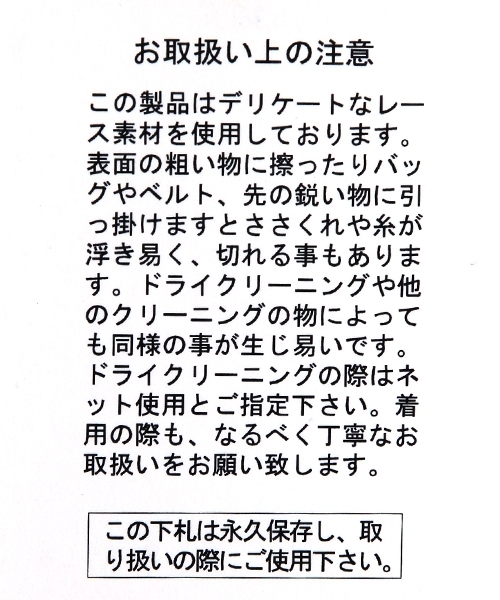 お取扱い上の注意
この製品はデリケートなレー
ス素材を使用しております。
表面の粗い物に擦ったりバッ
グやベルト、先の鋭い物に引
っ掛けますとささくれや糸が
浮き易く、切れる事もありま
す。ドライクリーニングや他
のクリーニングの物によって
も同様の事が生じ易いです。
ドライクリーニングの際はネ
ット使用とご指定下さい。着
用の際も、なるべく丁寧なお
取扱いをお願い致します。
この下札は永久保存し、取
り扱いの際にご使用下さい。